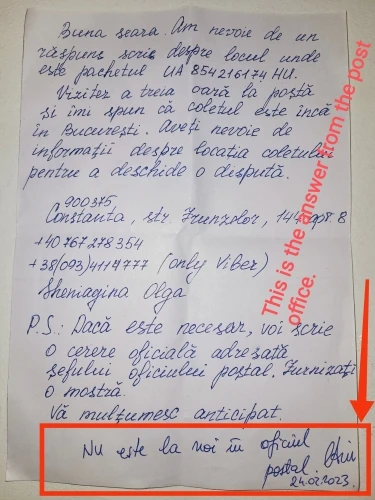 Buna seara. Am nevoie de un
răspuns scris despre locul unde
este pachetul UA 854216174 HU.
Vizitez a treia oară la poștă
și îmi spun că coletul este încă
în București. Aveți nevoie de
informații despre locația coletului
pentru a deschide o dispută.
900375,
Constanta, str Frunzelor, 144 apt. 8
+40767278354
+38(093)4114777 (only Viber)
Sheniagina Olga
P.S.: Dacă este necesar, voi scrie
o cerere oficială adresată
șefului oficiului poștal. Furnizați
o mostră.
Vă mulțumesc anticipat.
Nu este la noi în oficiul
poștal.
24.02.2023.
This is the answer from the post
office.